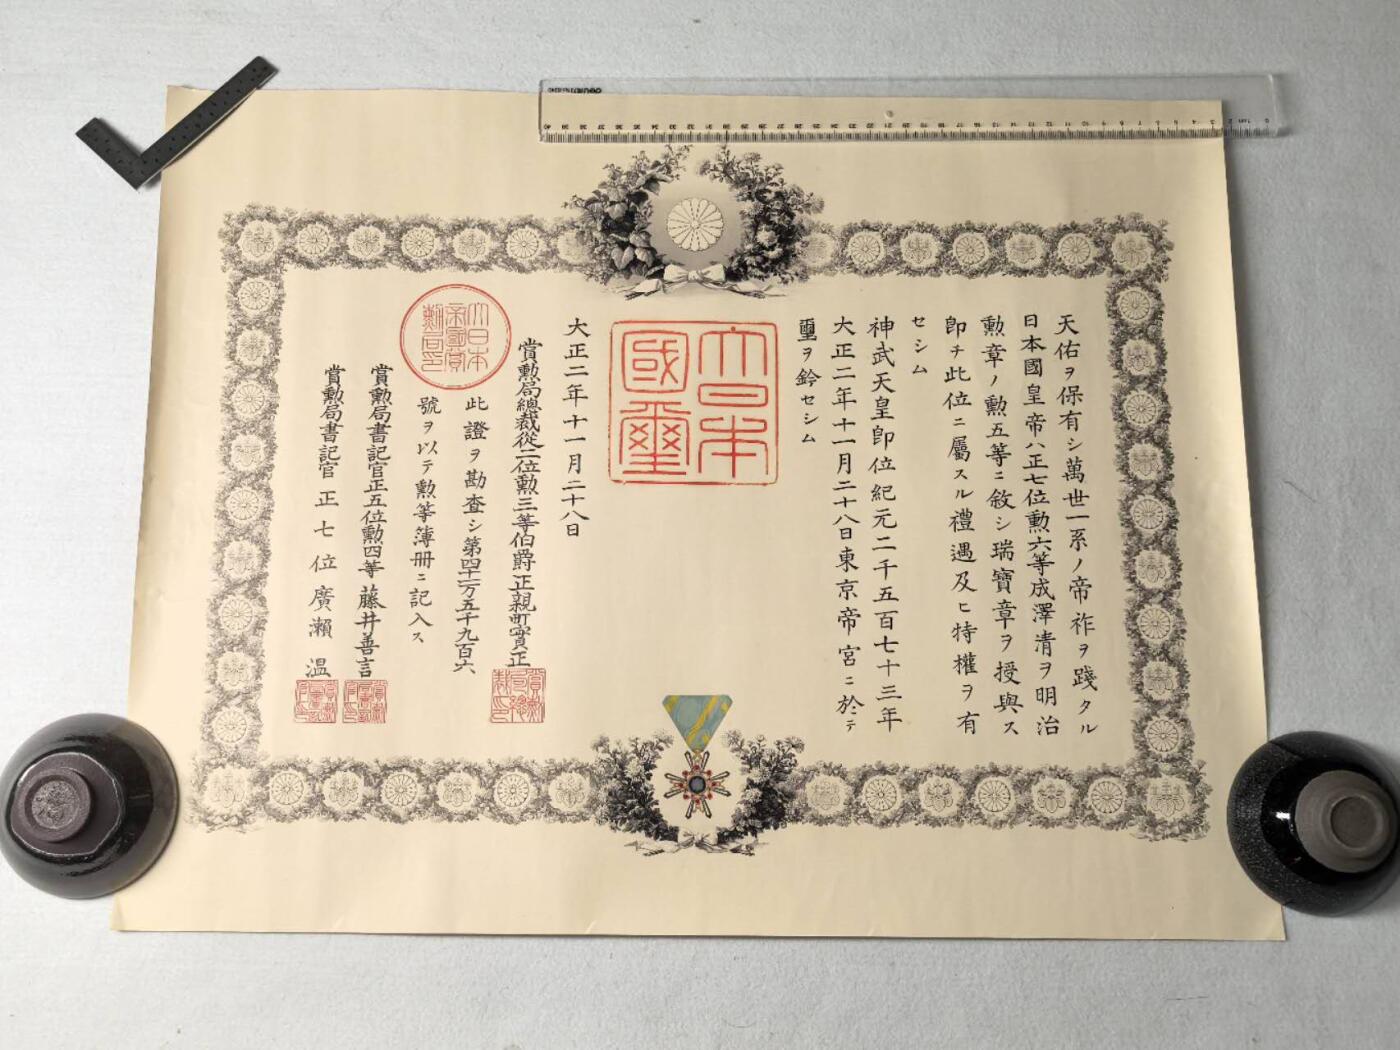 天佑ヲ保有シ萬世一系ノ帝祚ヲ踐タル
日本國皇帝ハ正七位勲六等成澤清ヲ明治
勲章ノ勲五等ニ敘シ瑞寶章ヲ授與ス
卽チ此位ニ屬スル禮遇及ヒ特權ヲ有
セシム
神武天皇卽位紀元二千五百七十三年
大正二年十一月二十八日東京帝宮ニ於テ
璽ヲ鈐セシム
大日本
國璽
大正二年十一月二十八日
賞勲局總裁從二位勲三等伯爵正親町實正
此證ヲ勘査シ第四十二万五千九百六
號ヲ以テ勲等簿册ニ記入ス
大日本
帝國賞
勲局印
賞勲局書記官正五位勲四等藤井善言
賞勲局書記官正七位廣瀬溫